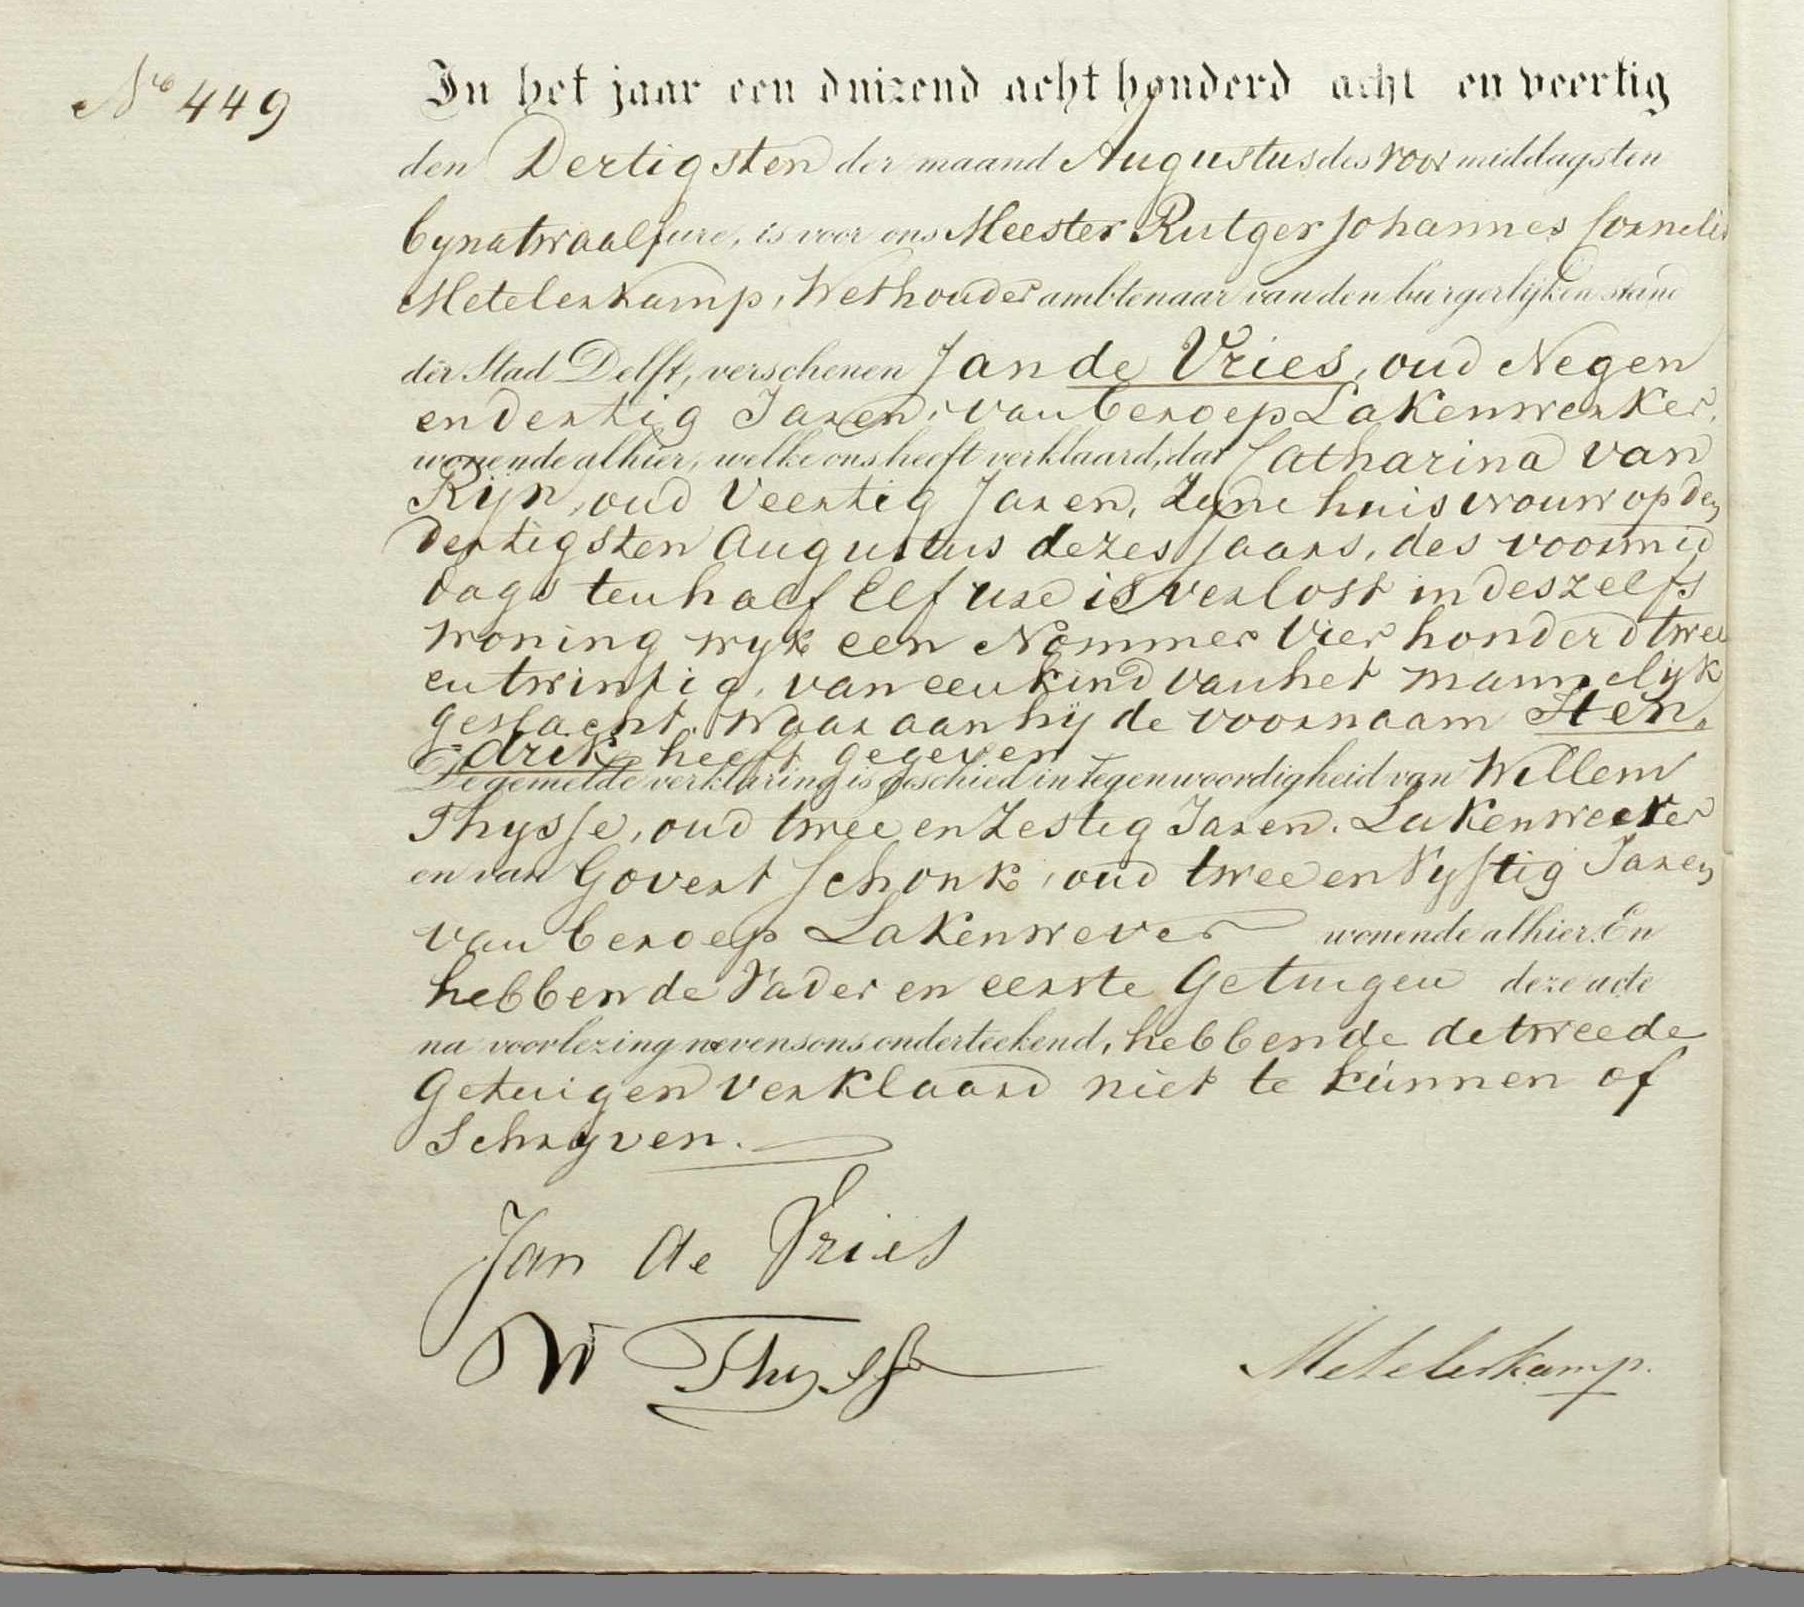 No 449
In het jaar een duizend acht honderd acht en veertig
den Dertigsten der maand Augustus des voor middags ten
bynatwaalf ure, is voor ons Meester Rutger Johannes Cornelis
Metelerkamp, Wethouder ambtenaar van den burgerlijken stand
der Stad Delft, verschenen Jan de Vries, oud Negen
en dertig Jaren, van beroep Lakenwerker,
wonende alhier, welke ons heeft verklaard, dat Catharina van
Rijn, oud Veertig Jaren, Zyne huisvrouw op den
dertigsten Augustus dezes Jaars, des voormid
dags ten half Elf ure is verlost in deszelfs
woning wyk een Nommer Vier honderd twee
en twintig, van een kind van het mannelijk
geslacht, waar aan hij de voornaam Hen,
drik heeft gegeven
De gemelde verklaring is geschied in tegenwoordigheid van Willem
Thysse, oud twee en Zestig Jaren. Lakenwerker
en van Govert Schonk, oud twee en Vyftig Jaren
van beroep Lakenwever wonende alhier. En
hebben de Vader en eerste Getuigen deze acte
na voorlezing nevens ons onderteekend, hebbende de tweede
Getuigen verklaard niet te kunnen of
Schryven.
Jan de Vries
W Thysse
Metelerkamp.